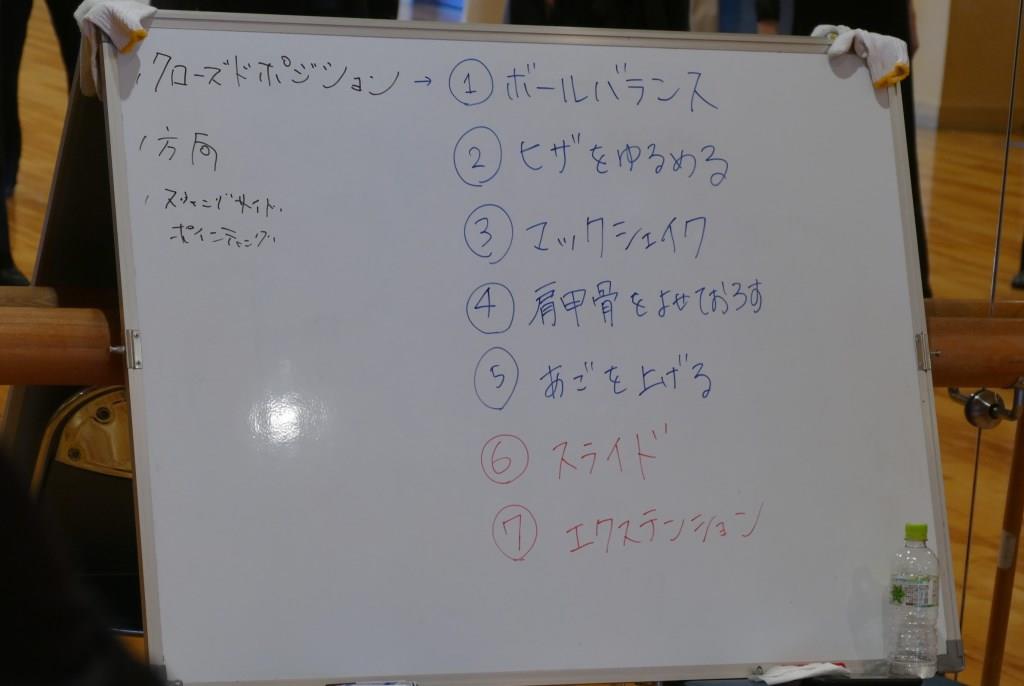 クローズドポジション → ① ボールバランス
方向
② ヒザをゆるめる
スウィングサイド
ポインティング
③ マックシェイク
④ 肩甲骨をよせておろす
⑤ あごを上げる
⑥ スライド
⑦ エクステンション